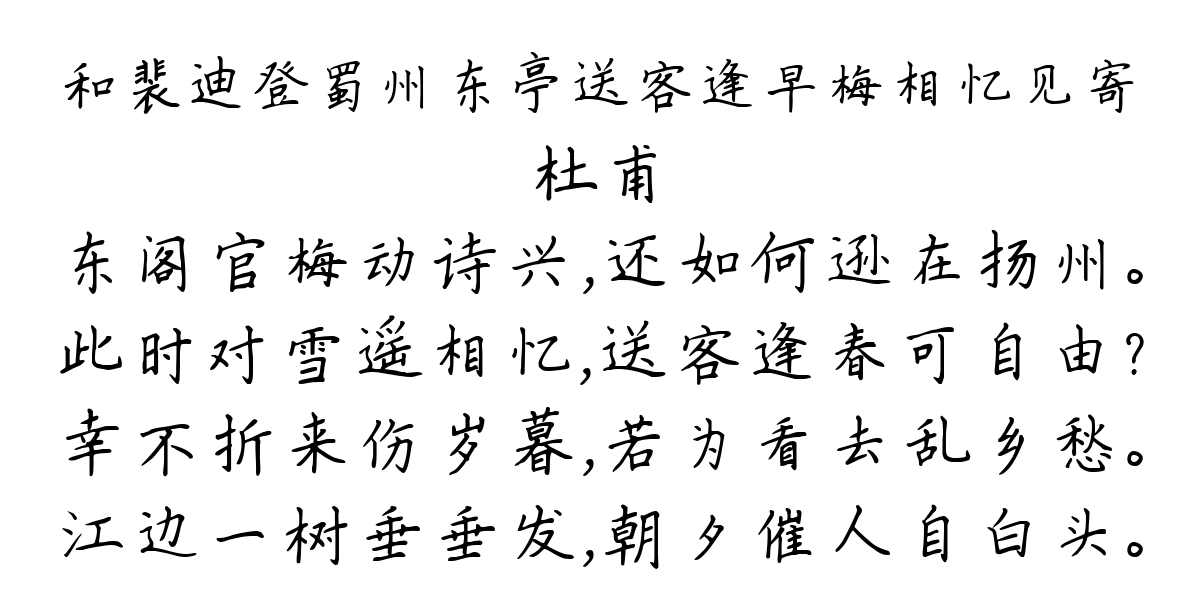 和裴迪登蜀州东亭送客逢早梅相忆见寄
杜甫
东阁官梅动诗兴,还如何逊在扬州。
此时对雪遥相忆,送客逢春可自由?
幸不折来伤岁暮,若为看去乱乡愁。
江边一树垂垂发,朝夕催人自白头。